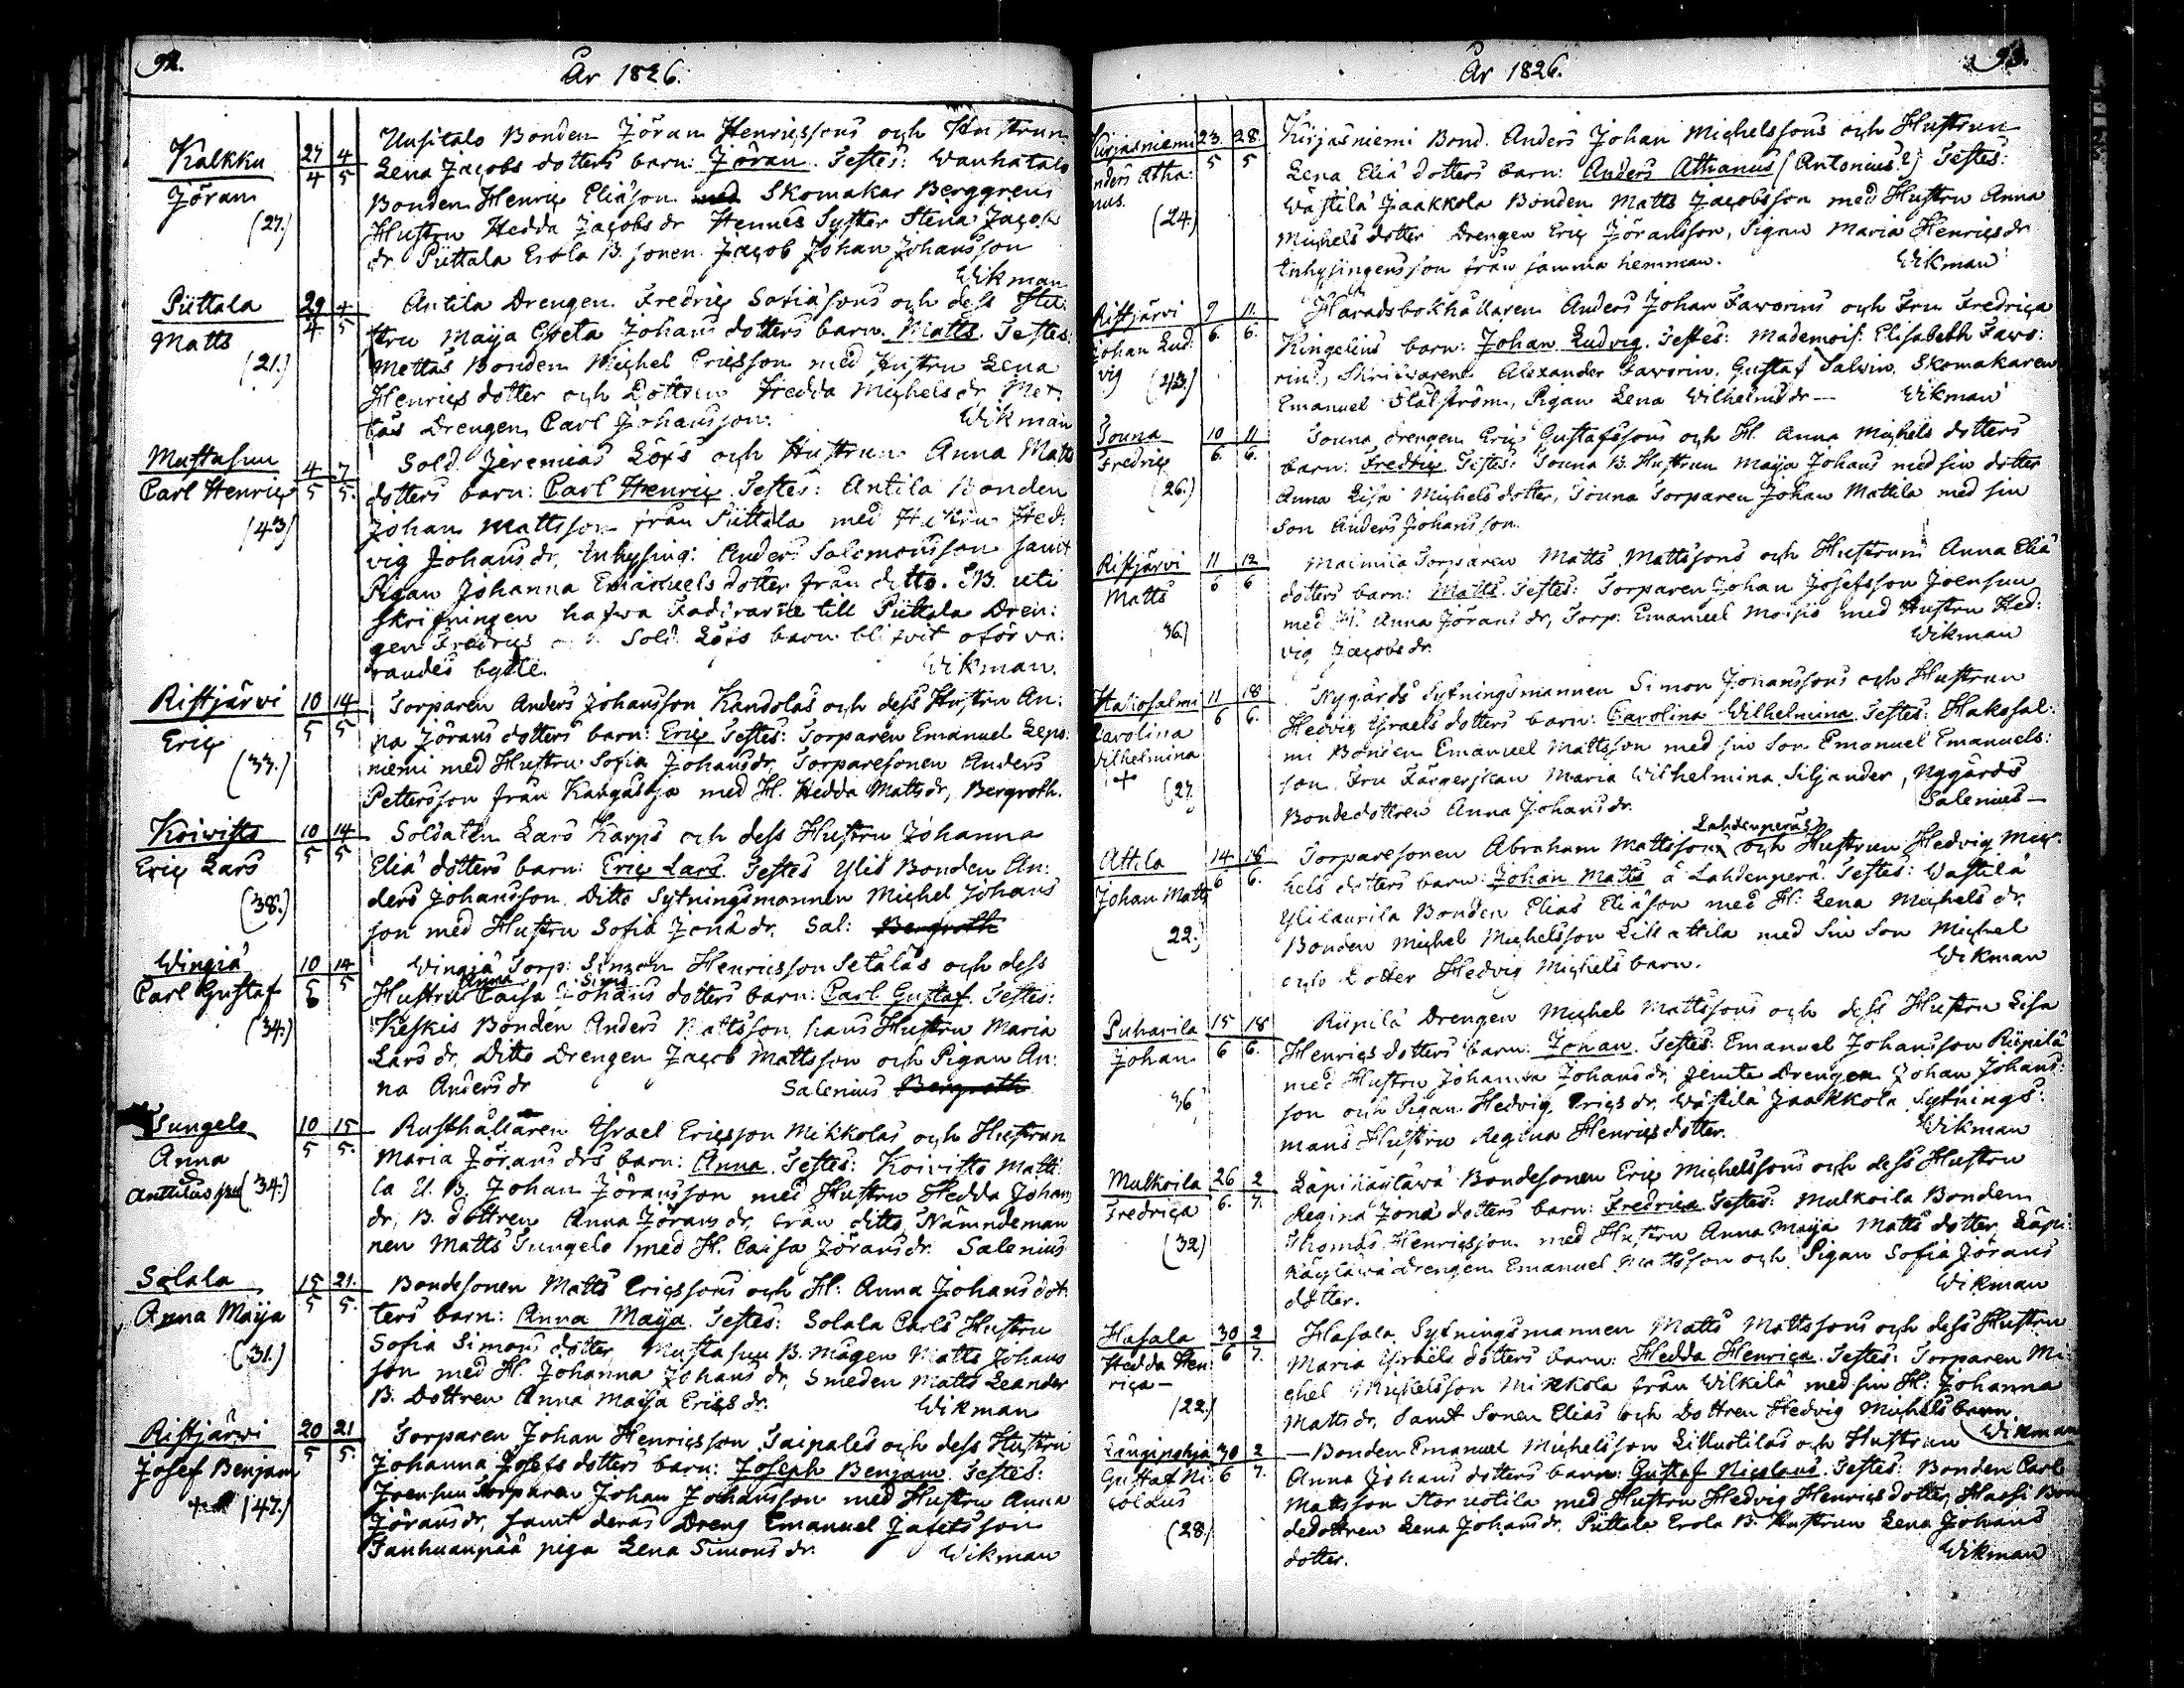 92.
År 1826.
Kalkku
Jöran
(27.)
27/4 4/5
Uusitalo Bonden Jöran Henricssons och Hustrun
Lena Jacobs dotters barn: Jöran. Testes: Wanhatalo
Bonden Henric Eliäson med Skomakar Berggrens
Hustru Hedda Jacobs dr Hennes Syster Stina Jacobs
dr. Püttala Erola B. sonen Jacob Johan Johansson
Wikman
Püttala
Matts
(21.)
29/4 4/5
Antila Drengen Fredric Sofiä sons och dess Hu:
stru Maija Greta Johans dotters barn. Matts. Testes:
Mettäs Bonden Michel Ericsson med Hustru Lena
Henrics dotter och Dottren Hedda Michels dr. Met:
täs Drengen Carl Johansson.
Wikman
Mustasuu
Carl Henric
(43)
4/5 7/5.
Sold. Jeremias Löfs och Hustrun Anna Matts
dotters barn: Carl Henric. Testes: Antila Bonden
Johan Mattsson från Süttala med Hustru Hed:
vig Johans dr, Inhysing: Anders Salomonsson samt
Pigan Johanna Emanuels dotter från ditto. NB. uti
skrifningen hafwa Faddrarne till Püttala Dren:
gen Fredrics och Sold. Löfs barn blifvit oförva:
randes bytte.
Wikman.
Ristjärvi
Eric
(33.)
10/5 14/5
Torparen Anders Johansson Kandolas och dess Hustru An:
na Jörans dotters barn: Eric Testes: Torparen Emanuel Lepo:
niemi med Hustru Sofia Johans dr, Torparesonen Anders
Pettersson från Kangasoja med H. Hedda Matts dr, Bergroth.
Koivisto
Eric Lars
(38.)
10/5 14/5
Soldaten Lars Karps och dess Hustru Johanna
Eliä dotters barn: Eric Lars. Testes Ylis Bonden An:
ders Johansson Ditto Sytningsmannen Michel Johans
son med Hustru Sofia Jonä dr. Sal: Bergroth
Wingiä
Carl Gustaf
(34.)
10/5 14/5
Wingiä Torp: Simon Henricsson Setäläs och dess
Anna
Hustru Caisa Johans dotters barn: Carl Gustaf. Testes:
Keskis Bonden Anders Mattsson, hans Hustru Maria
Lars dr, Ditto Drengen Jacob Mattsson och Pigan An:
na Anders dr
Salenius Bergroth
Sungelo
Anna
(34.)
10/5 15/5.
Rusthållaren Israel Ericsson Mikkolas och Hustrun
Maria Jörans drs barn: Anna. Testes: Koivisto Matti:
la U. B. Johan Jöransson med Hustru Hedda Johans
dr, B. dottren Anna Jörans dr, från ditto, Nämndeman
nen Matts Sungelo med H. Caisa Jörans dr. Salenius
Solala
Anna Maija
(31.)
15/5 21./5.
Bondesonen Matts Ericssons och H: Anna Johans dot:
ters barn: Anna Maija. Testes: Solala Carls Hustru
Sofia Simons dotter, Mustasuu B. mågen Matts Johans
son med H. Johanna Johans dr, Smeden Matts Leander
B. Dottren Anna Maija Erics dr.
Wikman
Ristjärwi
Josef Benjam
(47.)
20/5 21/5.
Torparen Johan Henricsson Taipales och dess Hustru
Johanna Josefs dotters barn: Joseph Benjam. Testes:
Joensuu Torparen Johan Johansson med Hustru Anna
Jörans dr, samt deras Dreng Emanuel Jafetsson
Tanhuanpää piga Lena Simons dr.
Wikman
93.
År 1826.
Kirjasniemi
Anders Atha:
nus.
(24.)
23./5 28./5
Kirjasniemi Bond. Anders Johan Michelssons och Hustrun
Lena Eliä dotters barn: Anders Athanus (Antonius?) Testes:
Wästilä Jaakkola Bonden Matts Jacobsson med Hustru Anna
Michels dotter Drengen Eric Jöransson, Pigan Maria Henrics dr
Inhysingensson från samma hemman.
Wikman
Ristjärvi
Johan Lud:
vig (43.)
9/6. 11./6.
Häradsbokhållaren Anders Johan Faworins och Fru Fredrica
Kingelins barn: Johan Ludvig. Testes: Mademois. Elisabeth Fawo:
rin, Skrivaren Alexander Faworin, Gustaf Salvin, Skomakaren
Emanuel Stålström, Pigan Lena Wilhelms dr —
Wikman
Jouna
Fredric
(26.)
10/6. 11/6.
Jouna drengen Eric Gustafssons och H. Anna Michels dotters
barn: Fredric Testes: Jouna B. Hustrun Maija Johans med sin dotter
Anna Lisa Michels dotter, Jouna Torparen Johan Mattila med sin
Son Anders Johansson.
Ristjärvi
Matts
36)
11/6 12/6
Torparen Matts Mattssons och Hustruns Anna Eliä
dotters barn: Matts. Testes: Torparen Johan Josefsson Joensuu
med H. Anna Jörans dr, Torp. Emanuel Moisio med Hustru Hed:
vig Jacobs dr.
Wikman
Hakosalmi
Carolina
Wilhelmina
+ (27
11/6 18/6.
Nygårds Sytningsmannen Simon Johanssons och Hustrun
Hedvig Israels dotters barn: Carolina Wilhelmina Testes: Hakosal:
mi Bonden Emanuel Mattsson med sin Son Emanuel Emanuels:
son, Fru Färgerskan Maria Wilhelmina Siljander, Nygårds
Bondedottren Anna Johans dr.
Salenius —
Attila
Johan Matts
(22.)
14/6 18/6.
Lahdenperäs
Torparesonen Abraham Mattssons och Hustrun Hedvig Mic:
hels dotters barn: Johan Matts å Lahdenperä. Testes: Wästilä
Ylilaurila Bonden Elias Eliäson med H: Lena Michels dr,
Bonden Michel Michelsson Lill attila med Sin Son Michel
och Dotter Hedvig Michels barn.
Wikman
Puharila
Johan
36
15/6 18/6.
Riipilä Drengen Michel Mattssons och dess Hustru Lisa
Henrics dotters barn: Johan. Testes: Emanuel Johansson Riipilä
med Hustru Johanna Johans dr, Drengen Johan Johans:
son och Pigan Hedvig Erics dr, Wästilä Jaakkola Sytnings:
mans Hustru Regina Henrics dotter.
Wikman
Mulkoila
Fredrica
(32)
26/6. 2/7.
Läpikäytävä Bondesonen Eric Michelssons och dess Hustru
Regina Jonä dotters barn: Fredrica Testes: Mulkoila Bonden
Thomas Henricsson med Hustru Anna Maija Matts dotter, Läpi:
käytävä Drengen Emanuel Mattsson och Pigan Sofia Jörans
dotter.
Wikman
Hasala
Hedda Hen:
rica —
(22.)
30/6 2/7.
Hasala Sytningsmannen Matts Mattssons och dess Hustru
Maria Israels dotters barn: Hedda Henrica. Testes: Torparen Mi:
chel Michelsson Mikkola från Wilkilä med sin H: Johanna
Matts dr, Samt Sonen Elias och Dottren Hedvig Michels barn
Wikman
Laugipohja
Gustaf Ni:
colaus
(28)
30/6 2/7.
— Bonden Emanuel Michelsson Lilluotilas och Hustrun
Anna Johans dotters barn: Gustaf Nicolaus. Testes: Bonden Carl
Mattsson Storuotila med Hustru Hedvig Henrics dotter, Haasi Bon
dedottren Lena Johans dr, Püttala Erola B. Hustrun Lena Johans
dotter.
Wikman